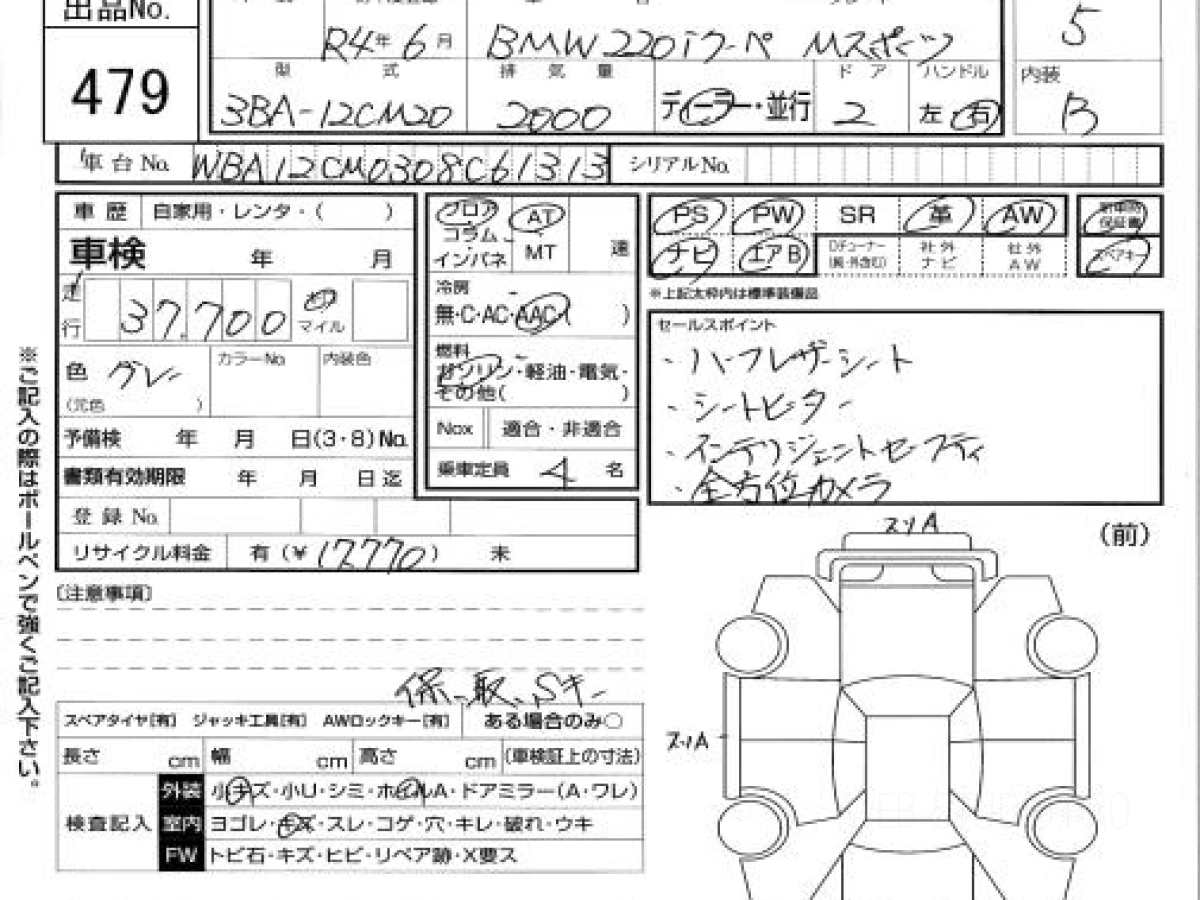 出品No.
479
R4年 6月 BMW 220iクーペ Mスポーツ
5
型 式 排 気 量 ディーラー・並行 ド ア ハンドル 内装
3BA-12CM20 2000 2 左・右 B
車台No. WBA12CM0308C61313 シリアルNo.
車 歴 自家用・レンタ・( )
車検 年 月
走行 37,700 マイル
色 グレー カラーNo. 内装色
(元色 )
予備検 年 月 日(3・8)No.
書類有効期限 年 月 日迄
登 録 No.
リサイクル料金 有(¥ 12770) 未
フロア AT
コラム
インパネ MT 速
冷房
無・C・AC・AAC( )
燃料
ガソリン・軽油・電気・
その他( )
Nox 適合・非適合
乗車定員 4 名
PS PW SR 革 AW 新車時保証書
ナビ エアB Dチューナー 社外ナビ 社外AW スペアキー
※上記太枠内は標準装備品
セールスポイント
・ハーフレザーシート
・シートヒーター
・インテリジェントセーフティ
・全方位カメラ
※ご記入の際はボールペンで強くご記入下さい。
(注意事項)
保、取、Sキー
スペアタイヤ[有] ジャッキ工具[有] AWロックキー[有] ある場合のみ○
長さ cm 幅 cm 高さ cm (車検証上の寸法)
検査記入
外装 小キズ・小U・シミ・ホイルA・ドアミラー(A・ワレ)
室内 ヨゴレ・キズ・スレ・コゲ・穴・キレ・破れ・ウキ
FW トビ石・キズ・ヒビ・リペア跡・X要ス
スリA
(前)
スリA